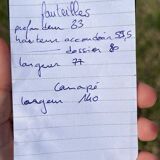 fauteuilles
profondeur 83
hauteur accoudoir 59,5
dossier 80
largeur 77
Canapé
largeur 140